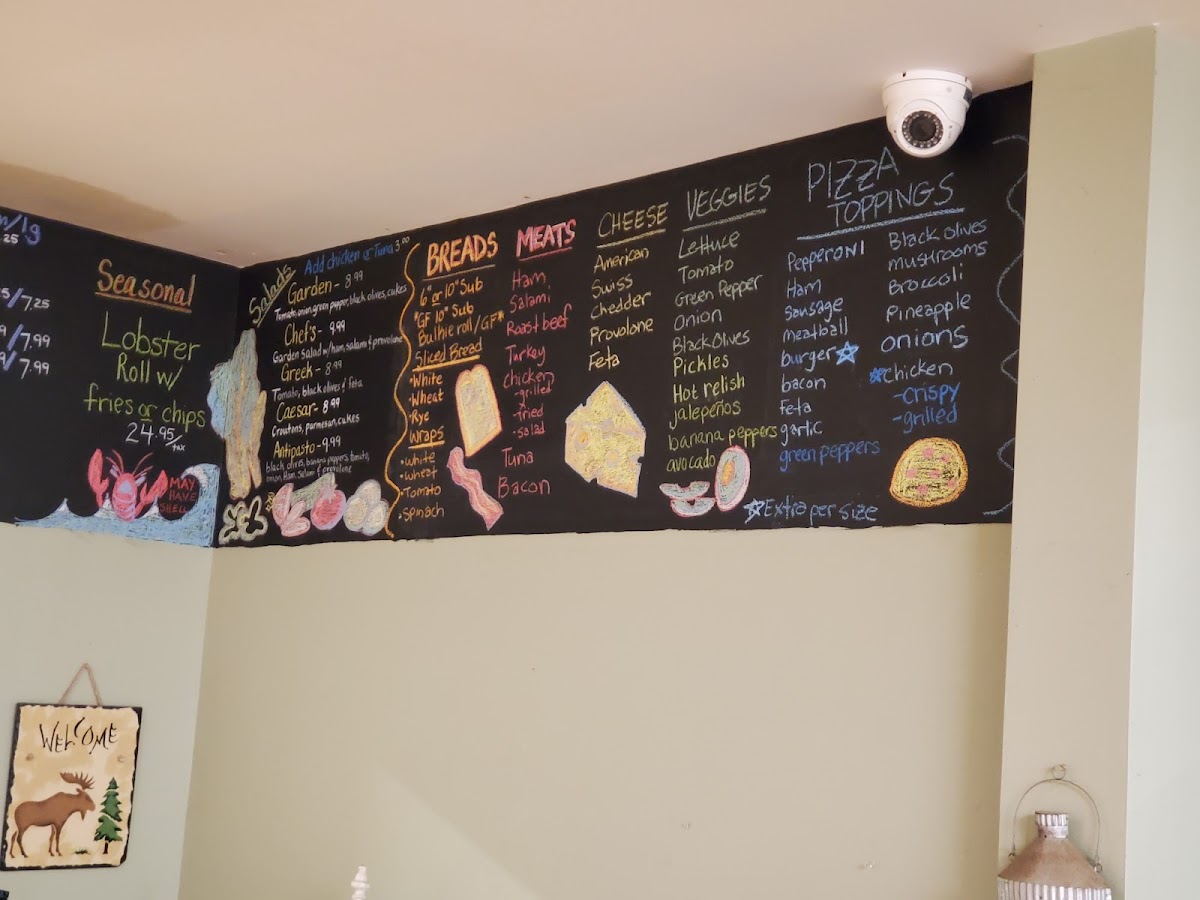 m/lg
25
5/7.25
9/7.99
9/7.99
Seasonal
Lobster
Roll w/
fries or chips
24.95/tax
MAY
HAVE
SHELL
Salads
Add chicken or Tuna 3.00
Garden - 8.99
Tomato, onion, green pepper, black olives, cukes
Chef's - 9.99
Garden Salad w/ ham, salami & provolone
Greek - 8.99
Tomato, black olives & feta
Caesar - 8.99
Croutons, parmesan, cukes
Antipasto - 9.99
black olives, banana peppers, tomato,
onion, Ham, salami & provolone
BREADS
6" or 10" Sub
*GF 10" Sub
Bulkie roll/GF*
Sliced Bread
•White
•Wheat
•Rye
Wraps
•White
•Wheat
•Tomato
•Spinach
MEATS
Ham
Salami
Roast beef
Turkey
chicken
-grilled
-fried
-salad
Tuna
Bacon
CHEESE
American
Swiss
Chedder
Provolone
Feta
VEGGIES
Lettuce
Tomato
Green Pepper
Onion
Black Olives
Pickles
Hot relish
jalepeños
banana peppers
avocado
PIZZA
TOPPINGS
Pepperoni
Ham
Sausage
meatball
burger
bacon
feta
garlic
green peppers
Black olives
mushrooms
Broccoli
Pineapple
onions
Chicken
-crispy
-grilled
Extra per size
WELCOME